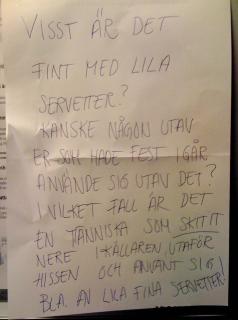 VISST ÄR DET
FINT MED LILA
SERVETTER?
KANSKE NÅGON UTAV
ER SOM HADE FEST IGÅR
ANVÄNDE SIG UTAV DET?
I VILKET FALL ÄR DET
EN MÄNNISKA SOM SKITIT
NERE I KÄLLAREN, UTAFÖR
HISSEN OCH ANVÄNT SIG
BLA. AV LILA FINA SERVETTER!